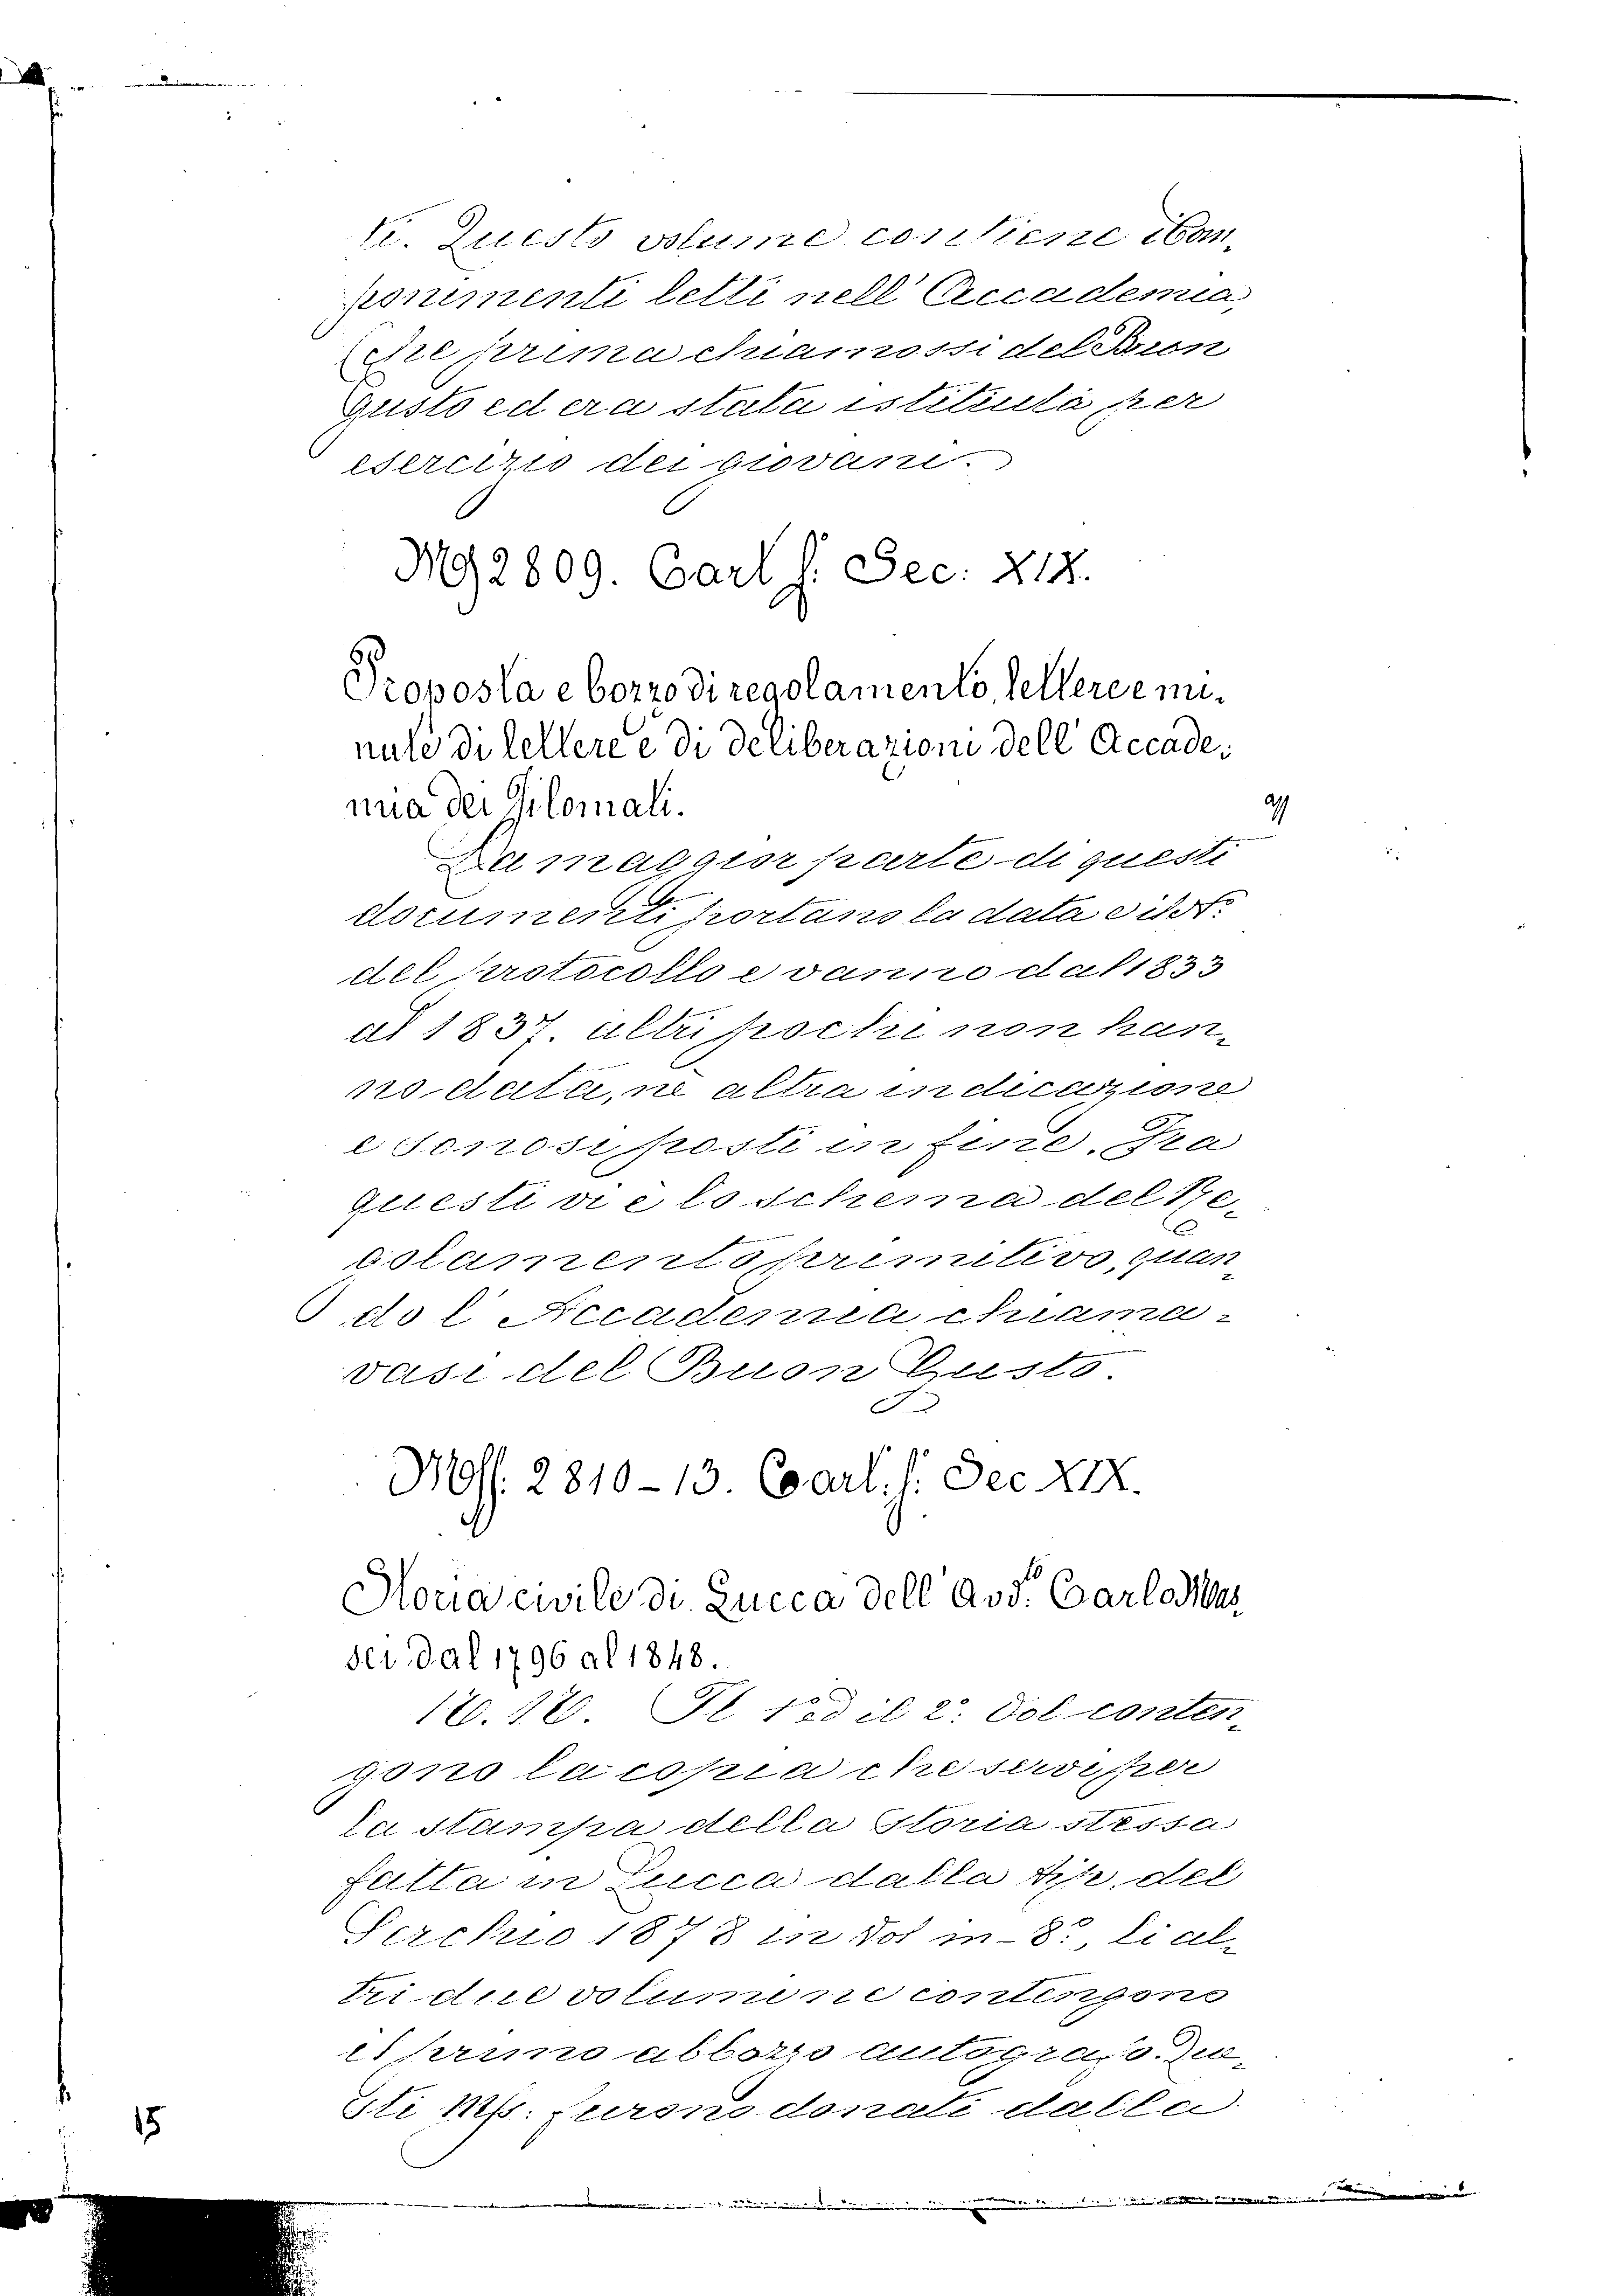 ti. Questo volume contiene i Com-
ponimenti letti nell'Accademia,
che prima chiamossi del Buon
Gusto ed era stata istituita per
esercizio dei giovani.
Ms 2809. Cart. f. Sec: XIX.
Proposta e bozzo di regolamento, lettere e mi-
nute di lettere e di deliberazioni dell'Accade-
mia dei Filomati.
La maggior parte di questi
documenti portano la data e il N.º
del protocollo e vanno dal 1833
al 1837. altri pochi non han-
no data, nè altra indicazione
e sonosi posti in fine. Fra
questi vi è lo schema del Re-
golamento primitivo, quan-
do l'Accademia chiama-
vasi del Buon Gusto.
Mss. 2810-13. Cart. f. Sec XIX.
Storia civile di Lucca dell'Avv.to Carlo Mas-
sei dal 1796 al 1848.
Il 1º ed il 2º Vol conten-
gono la copia che servì per
la stampa della Storia stessa
fatta in Lucca dalla tip. del
Serchio 1878 in Vol in-8º, li al-
tri due volumi ne contengono
il primo abbozzo autografo. Que-
sti Mss. furono donati dalla
15